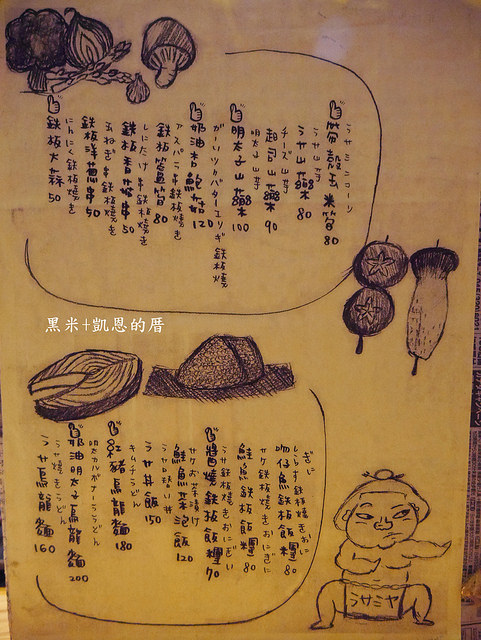 帶殼玉米筍 80
ラサミニコーン
ラサ山藥 80
ラサ山芋
起司山藥 90
チーズ山芋
明太子山藥 100
明太子山芋
奶油杏鮑菇 120
ガーリックバターエリンギ鉄板燒
鉄板蘆筍 80
アスパラ串鉄板燒き
鉄板香菇串 50
しいたけ串鉄板燒き
鉄板洋蔥串 50
玉ねぎ串鉄板燒き
鉄板大蒜 50
にんにく鉄板燒き
黑米+凱恩的厝
吻仔魚鉄板飯糰 80
しらす鉄板燒きおにぎり
鮭魚鉄板飯糰 80
サケ鉄板燒きおにぎり
醬燒鉄板飯糰 70
ラサ鉄板燒きおにぎり
鮭魚茶泡飯 120
サケお茶漬け
ラサ丼飯 150
紅豬烏龍麵 180
キムチうどん
奶油明太子烏龍麵 200
明太カルボナーラうどん
ラサ烏龍麵 160
ラサ燒きうどん
ラサミヤ